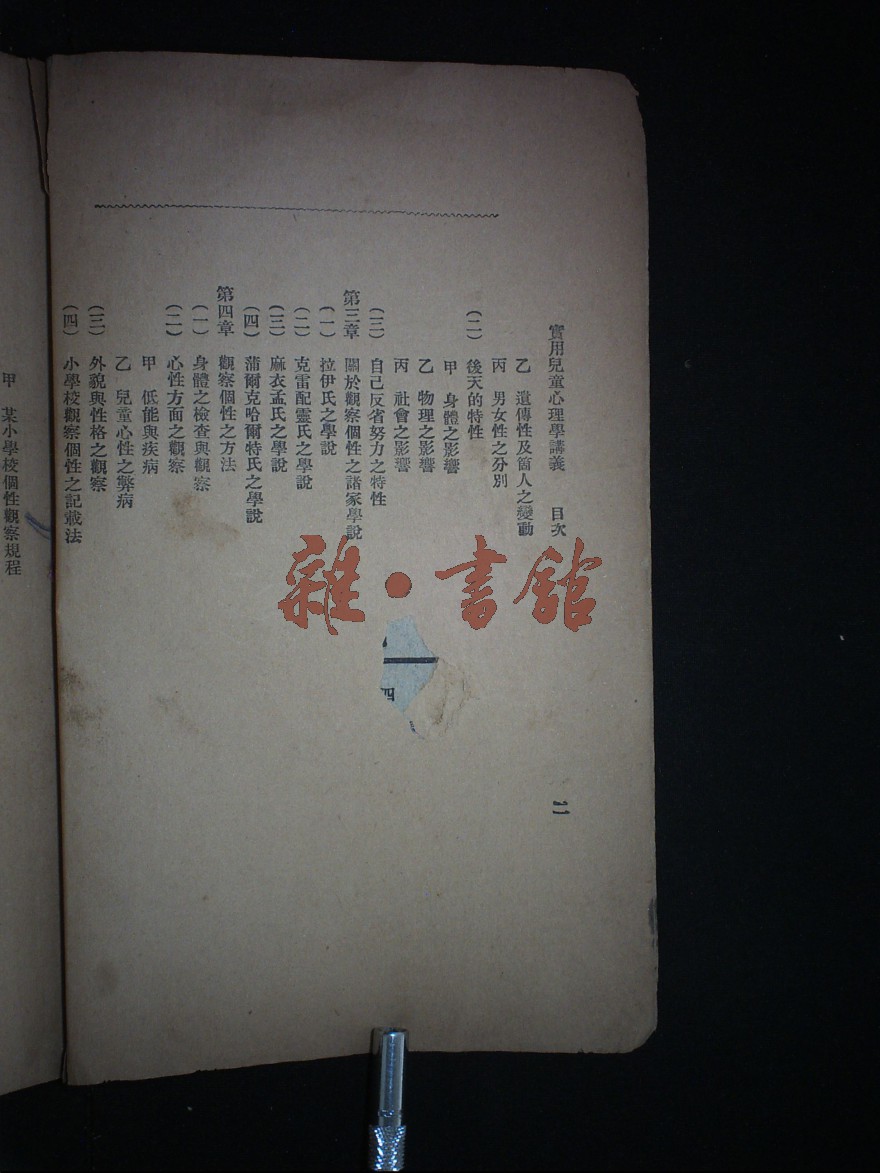 實用兒童心理學講義 目次
二
乙 遺傳性及箇人之變動
丙 男女性之分別
(二) 後天的特性
甲 身體之影響
乙 物理之影響
丙 社會之影響
(三) 自己反省努力之特性
第三章 關於觀察個性之諸家學說
(一) 拉伊氏之學說
(二) 克雷配靈氏之學說
(三) 麻衣孟氏之學說
(四) 蒲爾克哈爾特氏之學說
第四章 觀察個性之方法
(一) 身體之檢查與觀察
(二) 心性方面之觀察
甲 低能與疾病
乙 兒童心性之弊病
(三) 外貌與性格之觀察
(四) 小學校觀察個性之記載法
甲 某小學校個性觀察規程
四
雜·書館